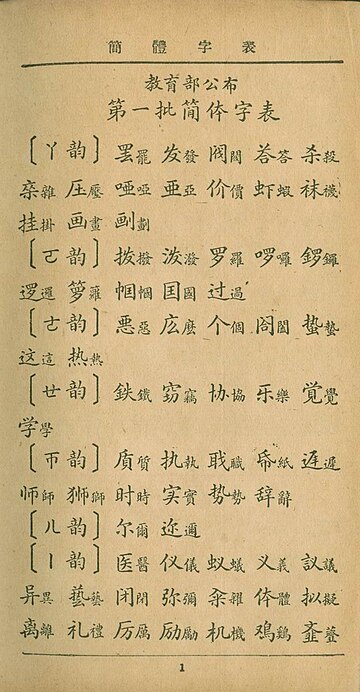 簡體字表
教育部公布
第一批简体字表
〔ㄚ韵〕罢罷 发發 阀閥 荅答 杀殺
杂雜 压壓 哑啞 亚亞 价價 虾蝦 袜襪
挂掛 画畫 划劃
〔ㄛ韵〕拨撥 泼潑 罗羅 啰囉 鑼
逻邏 箩籮 帼幗 囯國 过過
〔ㄜ韵〕恶惡 庅麼 个個 阁閣 蛰蟄
这這 热熱
〔ㄝ韵〕鉄鐵 窃竊 协協 乐樂 覚覺
学學
〔ㄭ韵〕质質 执執 职職 帋紙 迟遲
师師 狮獅 时時 实實 势勢 辞辭
〔ㄦ韵〕尔爾 迩邇
〔ㄧ韵〕医醫 仪儀 蚁蟻 义義 議
异異 藝 闭閉 弥彌 籴糴 体體 拟擬
离離 礼禮 厉厲 励勵 机機 鸡鷄
1